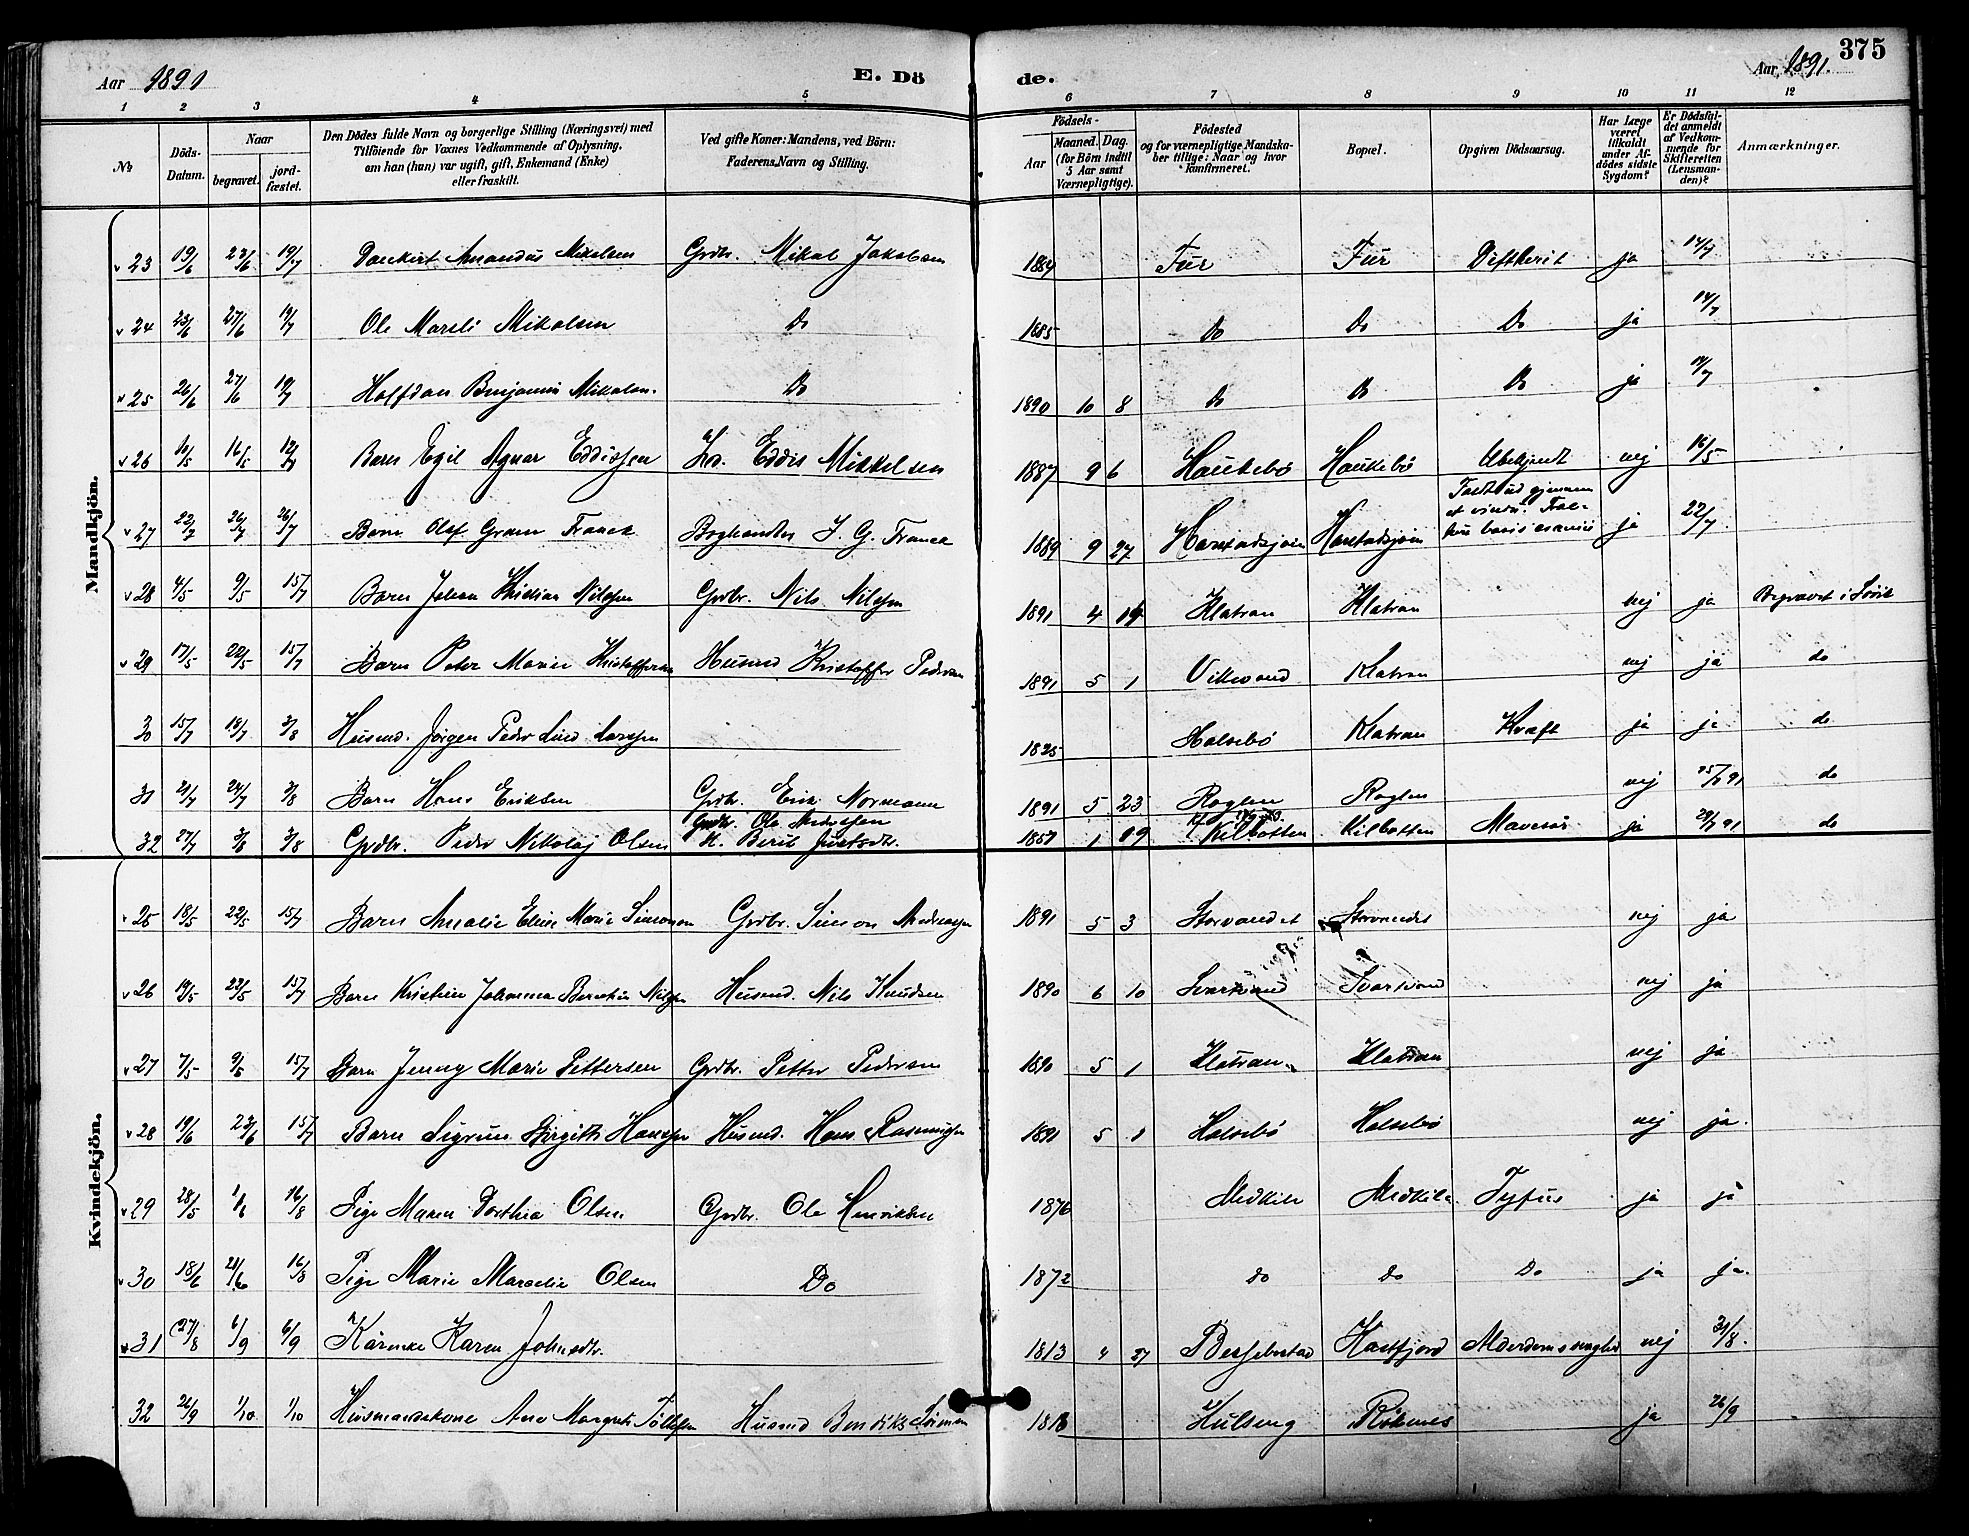 375
Aar 1891
E. Dö
de.
Aar 1891.
1 2 3 4 5 6 7 8 9 10 11 12
No
Döds-Datum.
Naar
begravet.
jord-fæstet.
Den Dödes fulde Navn og borgerlige Stilling (Næringsvei) med
Tilföiende for Voxnes Vedkommende af Oplysning,
om han (hun) var ugift, gift, Enkemand (Enke)
eller fraskilt.
Ved gifte Koner: Mandens, ved Börn:
Faderens Navn og Stilling.
Födsels-
Aar
Maaned. Dag.
(for Börn indtil
5 Aar samt
Værnepligtige).
Födested
og for værnepligtige Mandska-
ber tillige: Naar og hvor
konfirmeret.
Bopæl.
Opgiven Dödsaarsag.
Har Læge
været
tilkaldt
under Af-
dödes sidste
Sygdom?
Er Dödsfal-
det anmeldt
af Vedkom-
mende for
Skifteretten
(Lensman-
den)?
Anmærkninger.
Mandkjön.
23 19/6 23/6 19/7 Danckert Amandus Mikalsen Grdbr. Mikal Jakobsen 1884 Fur Fur Diftherit ja 14/7
24 23/6 27/6 19/7 Ole Mareli Mikalsen Do 1885 Do Do Do ja 14/7
25 26/6 27/6 19/7 Halfdan Benjamin Mikalsen. Do 1890 10 8 Do Do Do ja 14/7
26 10/5 16/5 12/7 Barn Egil Agnar Eddissen Eddis Mikkelsen 1887 9 6 Haukebö Haukebö Ubekjendt nej 16/5
27 22/7 26/7 26/7 Barn Olaf Gram Franck Boghandler J. G. Franck 1889 9 27 Harstadsjöen Harstadsjöen ud gjennem et ja 22/7
28 4/5 9/5 15/7 Barn Johan Kristian Nilssen Grdbr. Nils Nilssen 1891 4 14 Klatran Klatran nej ja Begravet i
29 17/5 22/5 15/7 Barn Peter Marie Kristoffersen Husmd Kristoffer Pedersen 1891 5 1 Vikevand Klatran nej ja do
30 15/7 18/7 3/8 Husmd. Jörgen Peder Lind Larssen 1825 Halsebö Klatran Kræft ja ja do
31 21/7 24/7 3/8 Barn Hans Eriksen Grdbr. Erik Normann 1891 5 23 Roglen Roglen nej 25/7 91 do
32 27/7 3/8 3/8 Grdbr. Peder Nikolaj Olsen Grdbr. Ole Andersen
K. Berit Justsdtr. 1857 1 19 Kilbotten Kilbotten Mavesår ja 28/7 91 do
Kvindekjön.
25 18/5 22/5 15/7 Barn Amalie Eline Marie Simonsen Grdbr. Simon Andreassen 1891 5 3 Storvandet Storvandet nej ja
26 19/5 22/5 15/7 Barn Kristine Johanna Berntine Nilssen Husmd. Nils Knudsen 1890 6 10 Svartvand Svartvand nej ja
27 7/5 9/5 15/7 Barn Jenny Marie Pettersen Grdbr. Petter Pedersen 1890 5 1 Klatran Klatran nej ja
28 19/6 23/6 15/7 Barn Sigrun Birgitte Hanssen Husmd. Hans Rasmussen 1891 5 1 Halsebö Halsebö nej ja.
29 28/5 1/6 16/8 Pige Maren Dorthea Olsen Grdbr. Ole Henriksen 1876 Medkila Medkila Tyfus ja ja
30 18/6 21/6 16/8 Pige Marie Marselie Olsen Do 1872 do do Do ja ja.
31 27/8 6/9 6/9 Kårenke Karen Johnsdtr. 1813 4 27 Bessebostad Kasfjord Alderdomssvaghed nej 31/8.
32 26/9 1/10 1/10 Husmandskone Ane Margrete Tollefsen Husmd Bendiks Simon 1818 Kulseng Röknes ja 26/9